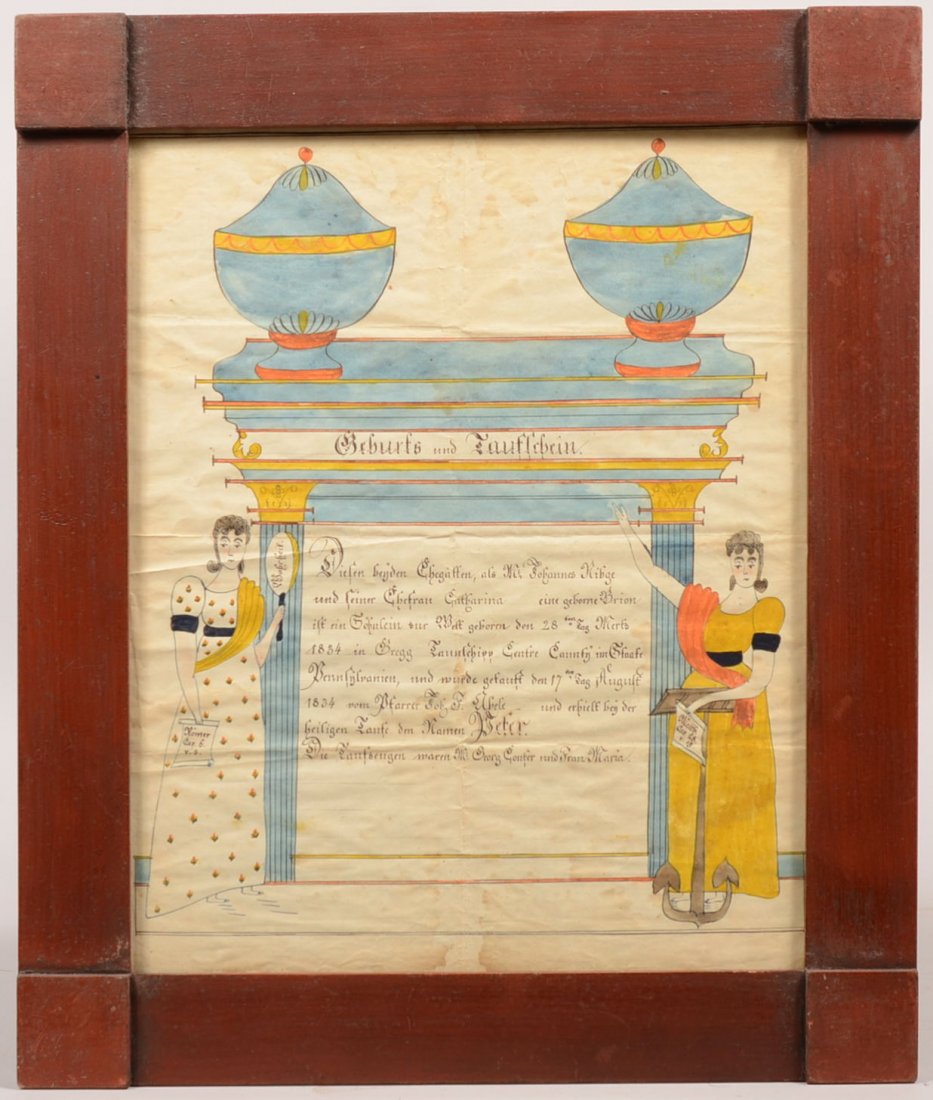 Geburts und Taufschein.
Wahrheit
Diesen beyden Ehegatten, als Mr. Johannes Ribge
und seiner Ehefrau Catharina eine geborne Brion
ist ein Söhnlein zur Welt geboren den 28 ten Tag Mertz
1834 in Gregg Taunschipp Centre Caunty im Staate
Pennsylvanien, und wurde getauft den 17 ten Tag August
1834 vom Pfarrer Joh. F. Abele und erhielt bey der
heiligen Taufe den Namen Peter.
Die Taufzeugen waren Mr. Georg Confer und Frau Maria.
Römer
Cap. 6.
v. 4.